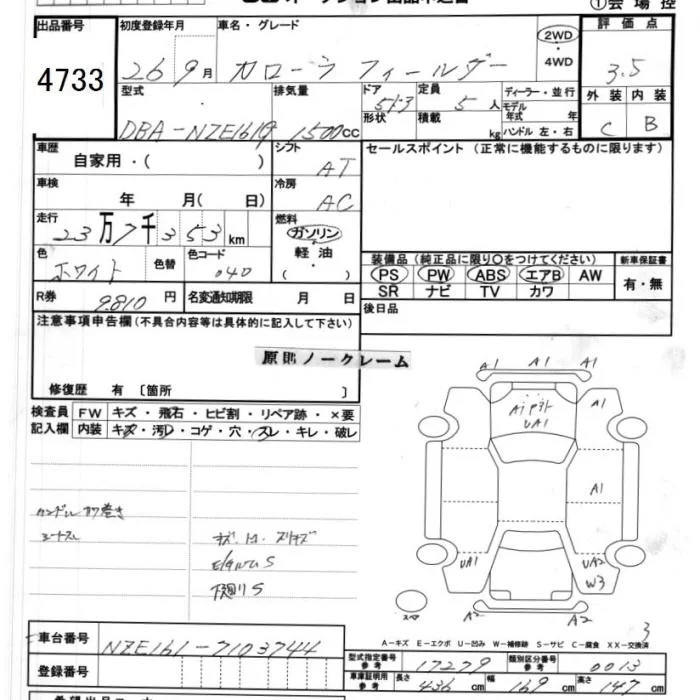 ①会場控
出品番号 初度登録年月 車名・グレード 評価点
4733 26 9月 カローラ フィールダー 2WD・4WD 3.5
型式 排気量 ドア形状 定員 人 積載 kg ディーラー・並行 外装 内装
DBA-NZE161G 1500cc 5ドア 5人 モデル年式 年 ハンドル 左・右 C B
車歴 自家用・( ) シフト AT セールスポイント (正常に機能するものに限ります)
車検 年 月(日) 冷房 AC
走行 23万7千353km 燃料 ガソリン・軽油・( )
色 ホワイト 色替 色コード 040
装備品 (純正品に限り○をつけてください) 新車保証書
PS PW ABS エアB AW 有・無
SR ナビ TV カワ
R券 9.810円 名変通知期限 月 日 後日品
注意事項申告欄(不具合内容等は具体的に記入して下さい)
原則ノークレーム
修復歴 有〔箇所 〕
検査員記入欄 FW キズ・飛石・ヒビ割・リペア跡・×要
内装 キズ・汚レ・コゲ・穴・スレ・キレ・破レ
A1 A1 A1
UA1 A1
A1
ハンドル
下廻りS
UA1 UA2
W3
スペア A2 A2
3
A-キズ E-エクボ U-凹み W-補修跡 S-サビ C-腐食 XX-交換済
車台番号 NZE161-7103744
型式指定番号 参考 17279 類別区分番号 参考 0013
登録番号 車庫証明用 参考 長さ 436cm 幅 169cm 高さ 147cm